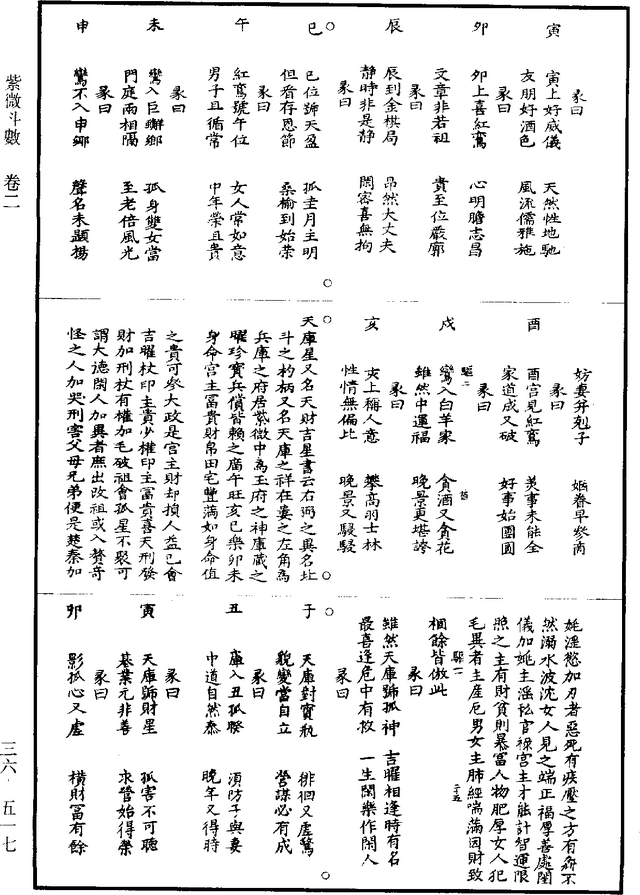 彖曰
寅 寅上好威儀 天然性地馳
友朋好酒色 風流儒雅施
彖曰
卯 卯上喜紅鸞 心明膽志昌
文章非若祖 貴至位嚴廊
彖曰
辰 辰到金棋局 昂然大丈夫
靜時非是靜 闊容喜無拘
彖曰
巳 巳位號天盈 孤圭月主明
但看存恩節 桑榆到始榮
彖曰
午 紅鸞號午位 女人常如意
男子且循常 中年榮且貴
彖曰
未 鸞入巨蟹鄉 孤身雙女當
門庭兩相隔 至老倍風光
彖曰
申 鸞不入申鄉 聲名未顯揚
妨妻并剋子 姻眷早參商
彖曰
酉 酉宮見紅鸞 美事未能全
家道成又破 好事始團圓
彖曰
戌 鸞入白羊家 貪酒又貪花
雖然中運福 晚景更堪誇
彖曰
亥 夾上稱人意 攀高羽士林
性情無偏比 晚景又駸駸
天庫星又名天財吉星書云右弼之異名壯
斗之杓柄又名天庫之祥在婁之左角為
兵庫之府居紫微中為玉府之神庫藏之
曜珍寶兵償皆賴之廣午旺亥巳樂卯未
身命宮主富貴財帛田宅豐滿如身命值
之貴可參大政是宮主財却損人益已會
吉曜杖印主貴少權印主富貴喜天刑發
財加刑杖有權加毛破祖會孤星不聚可
謂大德闊人加異者庶出改祖或入贅奇
怪之人加哭刑害父母兄弟便是楚秦加
姚淫慾加刃者惡死有疾壓之方有奔不
然溺水波沈女人見之端正福厚善處閨
儀加姚主淫訟官祿宮主才能計智運限
照之主有財貧則暴富人物肥厚女人犯
毛異者主產厄男女主肺經喘滿因財致
梱餘皆倣此
彖曰
雖然天庫號孤神 吉曜相逢時有名
最喜逢危中有救 一生閑樂作閑人
彖曰
子 天庫對寶瓶 徘徊又虛驚
貌變當自立 營謀必有成
彖曰
丑 庫入丑孤睽 須防子與妻
中道自然泰 晚年又得時
彖曰
寅 天庫號財星 孤害不可聽
基業元非善 求營始得榮
彖曰
卯 影孤心又虛 橫財富有餘
紫微斗數 卷二
三六·五一七